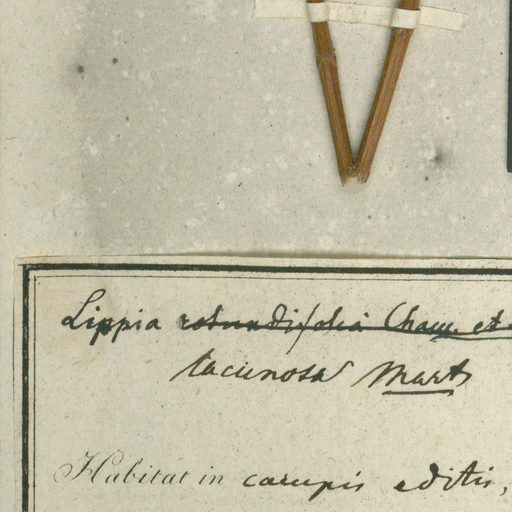 Lippia rotundifolia Cham. et
lacunosa Mart
Habitat in campis editis,